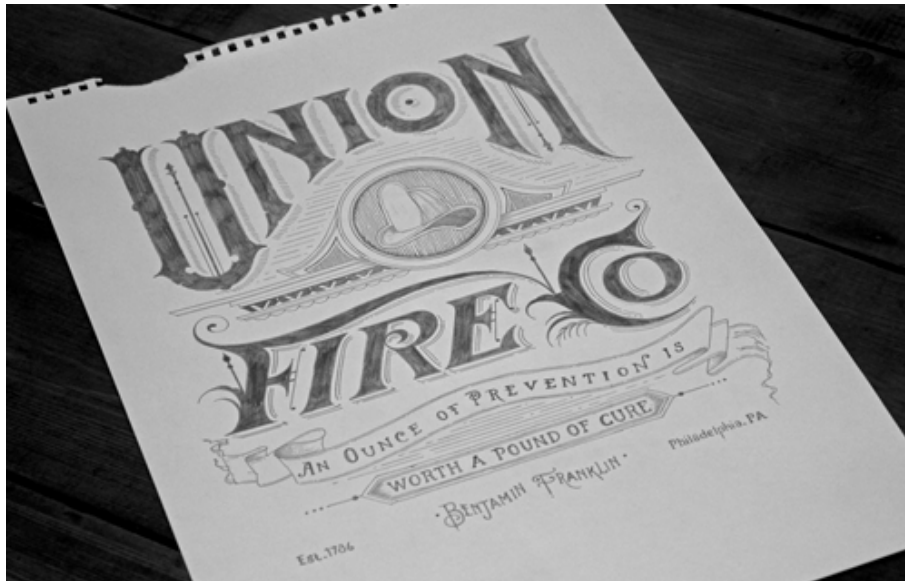 UNION
FIRE Co
AN OUNCE OF PREVENTION IS
WORTH A POUND OF CURE
· BENJAMIN FRANKLIN ·
Philadelphia, PA
Est. 1786